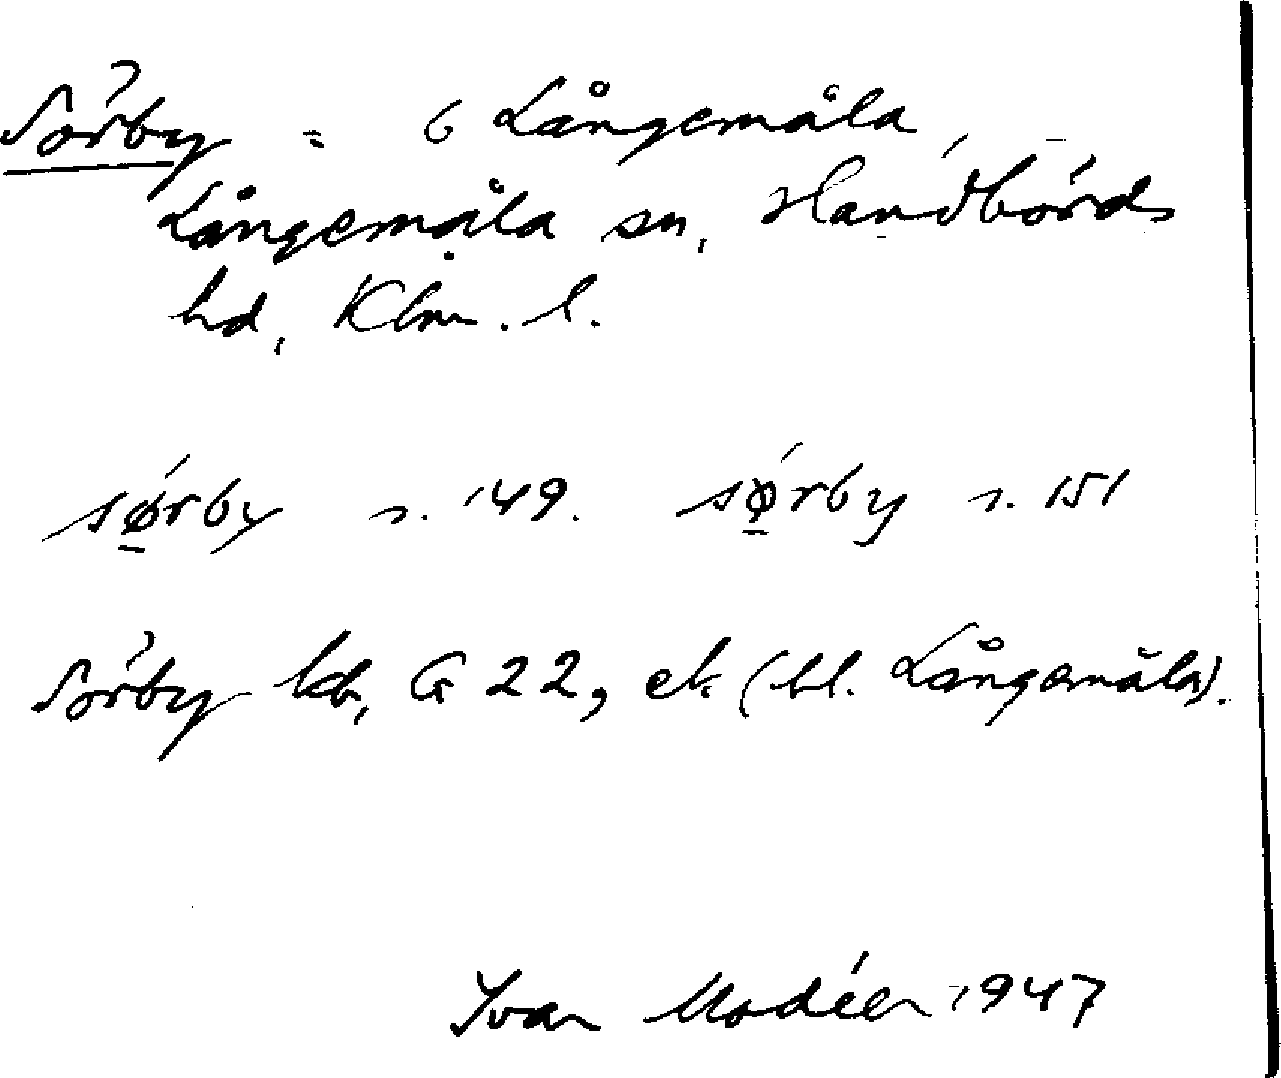 Sörby = 6 Långemåla,
Långemåla sn, Handbörds
hd, Klm. l.
sørby s. 149. sørby s. 151
Sörby lb, G 22, ek (bl. Långemåla).
Ivar Modéer 1947